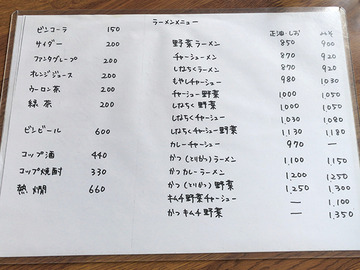 ビンコーラ 150
サイダー 200
ファンタグレープ 200
オレンジジュース 200
ウーロン茶 200
緑茶 200
ビンビール 600
コップ酒 440
コップ焼酎 330
熱燗 660
ラーメンメニュー
正油・しお みそ
野菜ラーメン 850 900
チャーシューメン 870 920
しなちくラーメン 870 920
もやしチャーシュー 980 1030
チャーシュー野菜 1000 1050
しなちく野菜 1000 1050
しなちくチャーシュー 1030 1080
しなちくチャーシュー野菜 1130 1180
カレーチャーシュー 970 ー
かつ(とりかつ)ラーメン 1,100 1,150
かつカレーラーメン 1,200 1,250
かつ(とりかつ)野菜 1,250 1,300
キムチ野菜チャーシュー ー 1,100
かつキムチ野菜 ー 1,350